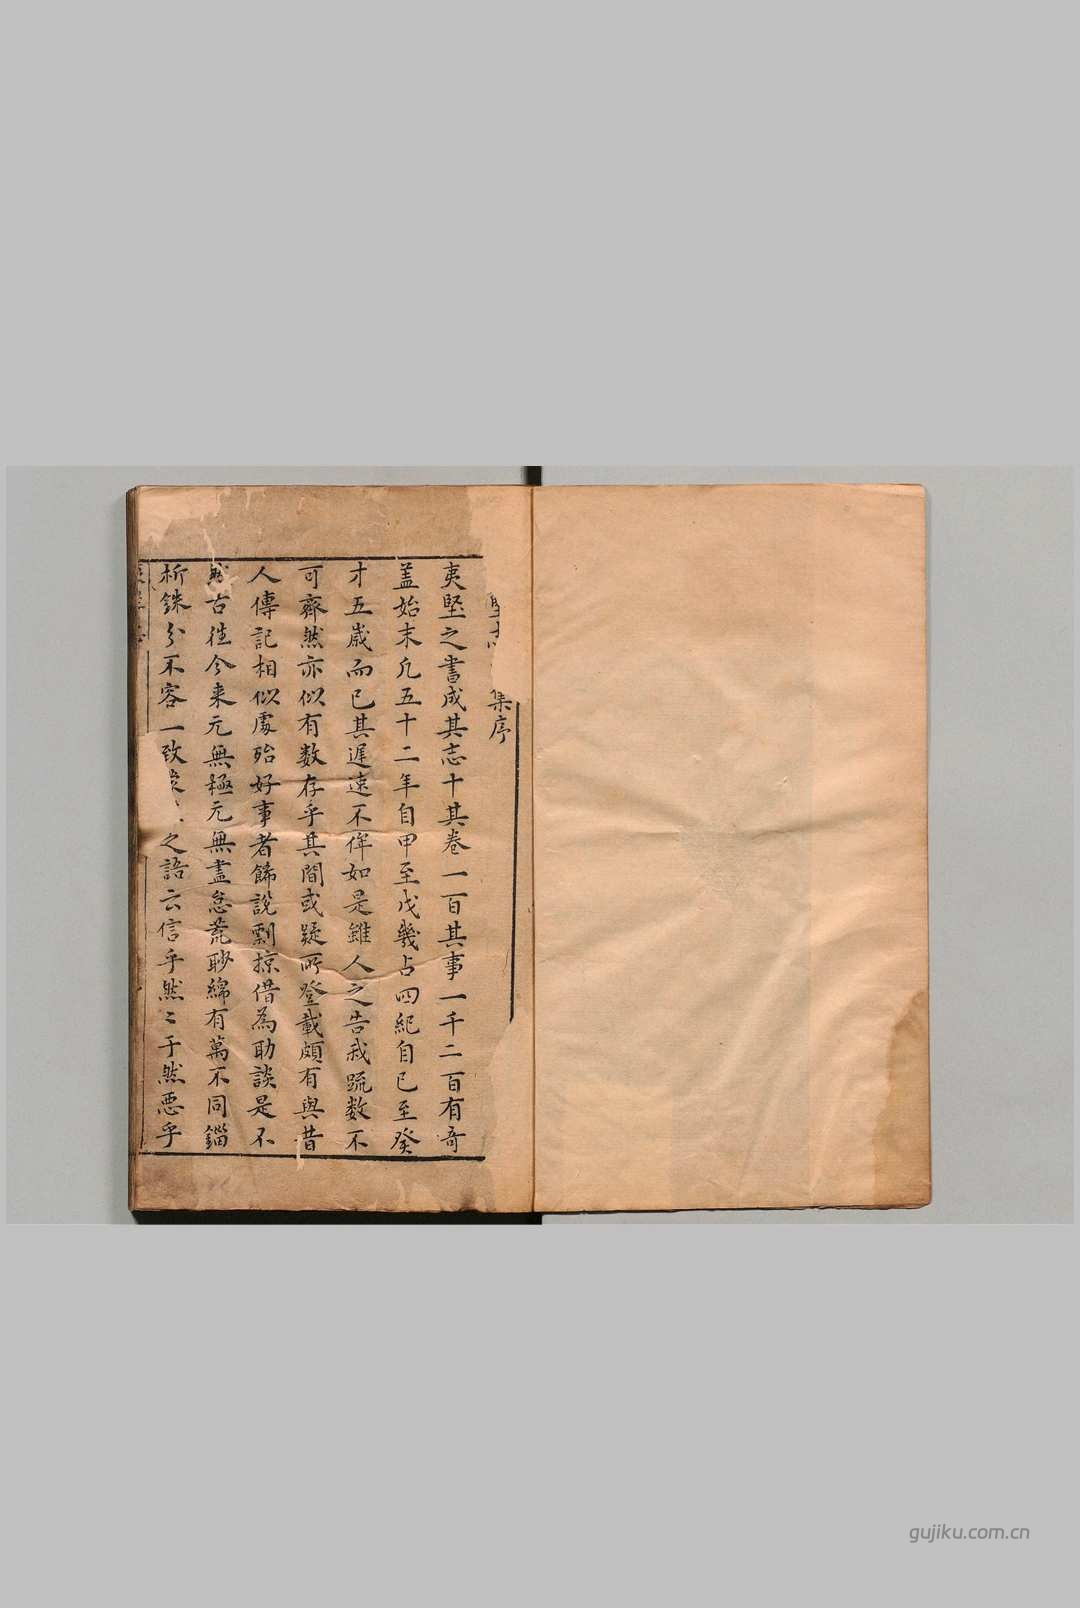 堅志 集序
夷堅之書成其志十其卷一百其事一千二百有奇
蓋始末凡五十二年自甲至戊幾占四紀自己至癸
才五歲而已其遲速不侔如是雖人之告我疏数不
可齊然亦似有数存乎其間或疑所登載頗有與昔
人傳記相似處殆好事者飾說剽掠借為助談是不
然古徃今来元無極元無盡荒忽眇綿有萬不同錙
析銖分不容一致 之語云信乎然〻于然惡乎
gujiku.com.cn